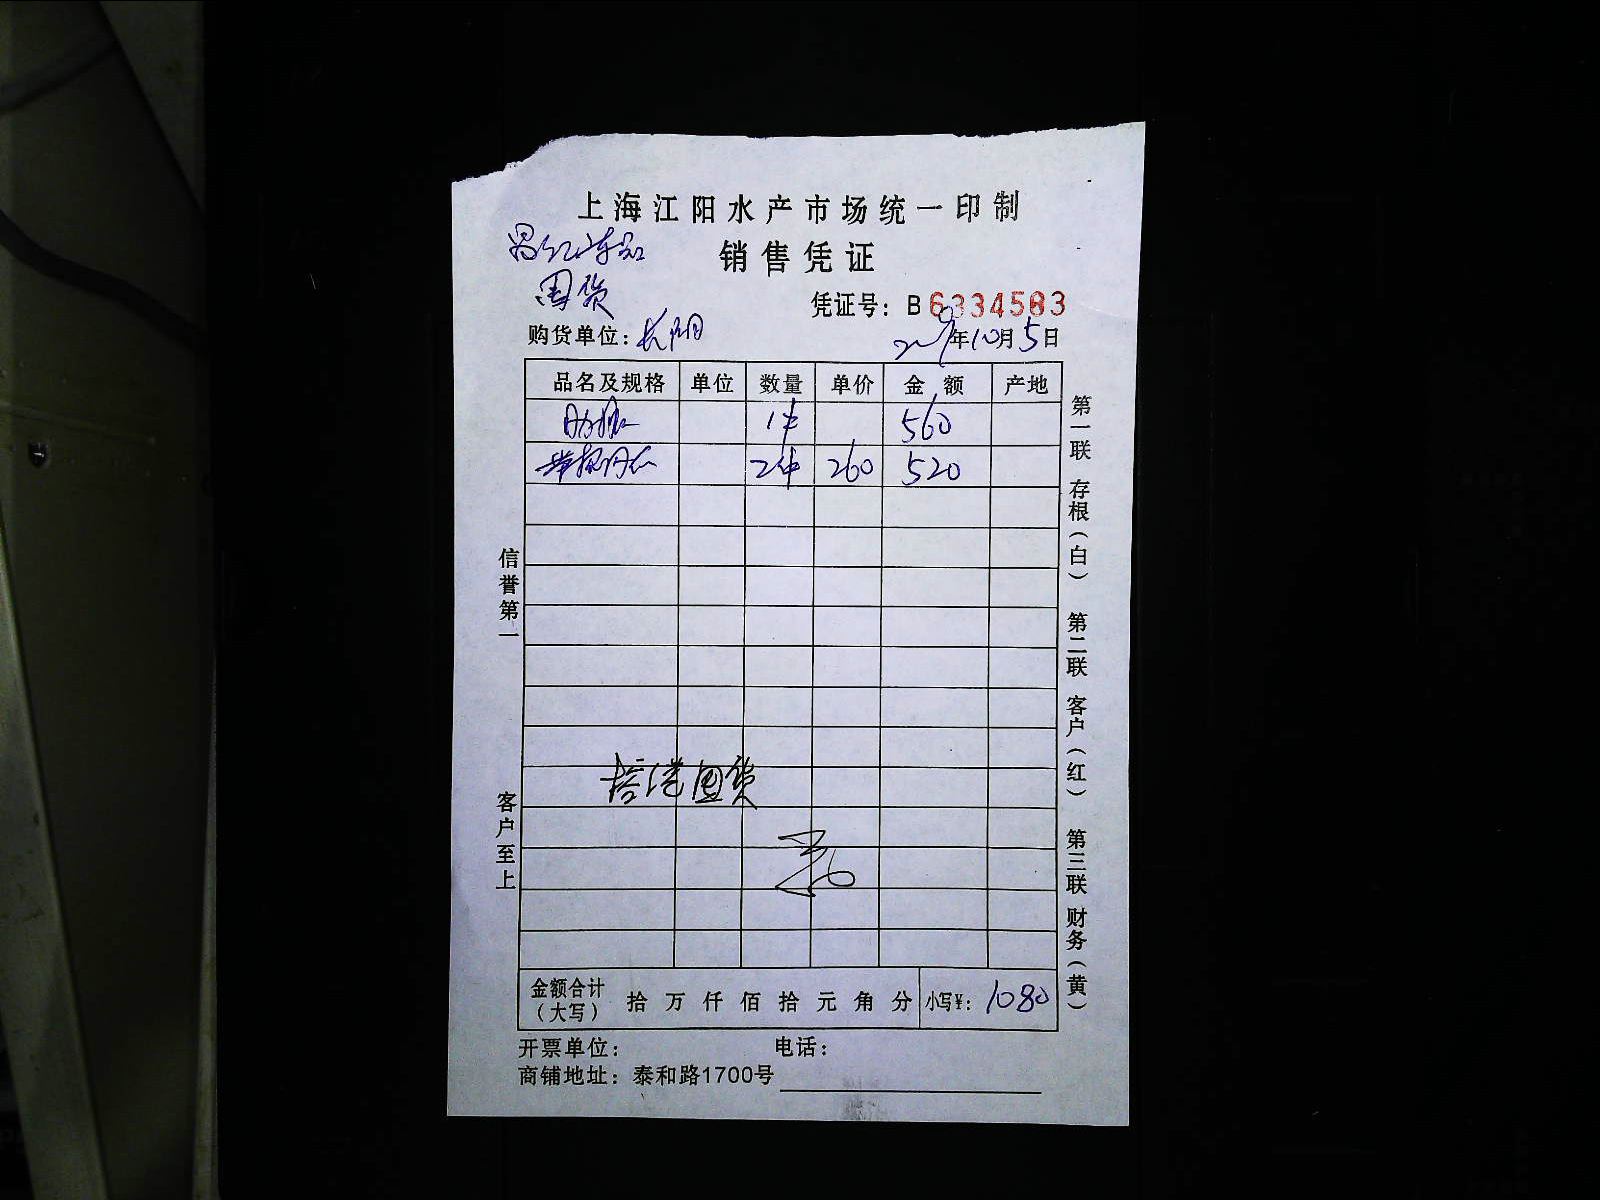 上海江阳水产市场统一印制
销售凭证
国货
凭证号：B6334583
购货单位：长阳
年10月5日
品名及规格 单位 数量 单价 金额 产地
1件 560
2件 260 520
信誉第一
客户至上
国货
第一联 存根（白） 第二联 客户（红） 第三联 财务（黄）
金额合计（大写） 拾万仟佰拾元角分 小写¥：1080
开票单位： 电话：
商铺地址：泰和路1700号